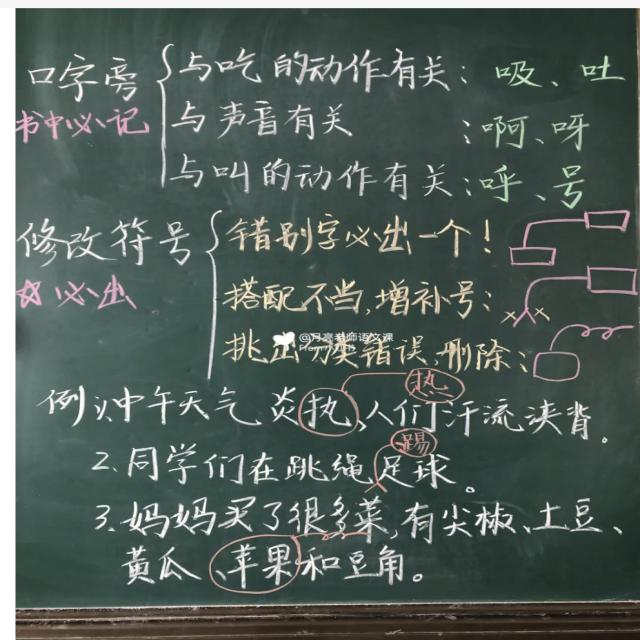 口字旁
书中必记
与吃的动作有关：吸、吐
与声音有关：啊、呀
与叫的动作有关：呼、号
修改符号
☆必出
错别字必出一个！
搭配不当,增补号：
@月亮老师语文课
挑出分类错误,删除：
热
例：1、中午天气炎执、人们汗流浃背。
踢
2.同学们在跳绳足球。
3.妈妈买了很多菜,有尖椒、土豆、
黄瓜、苹果和豆角。